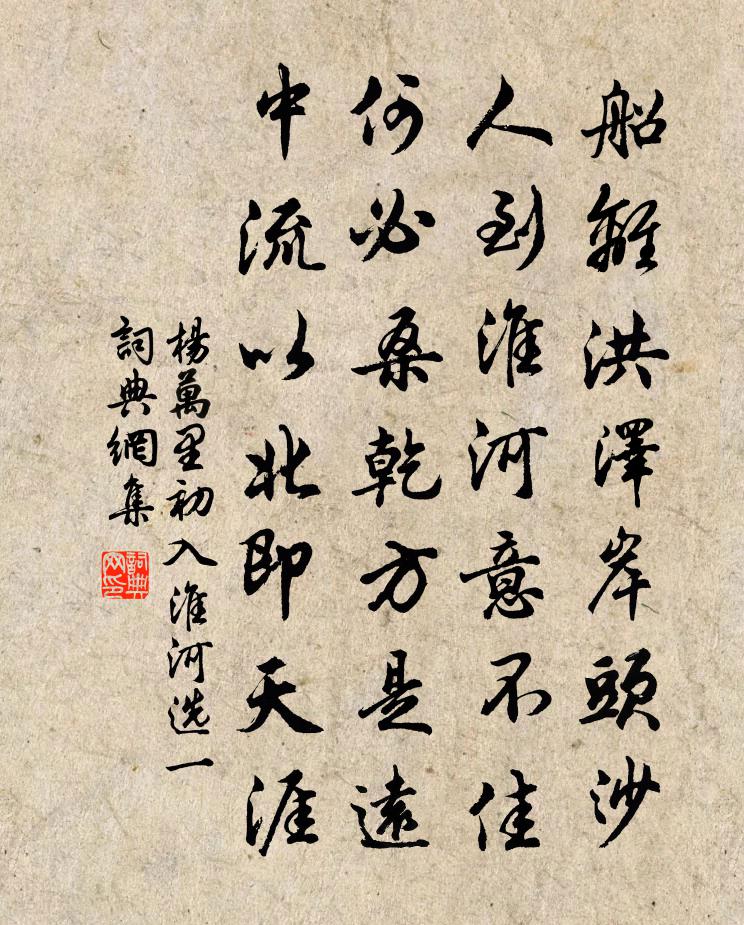 船離洪澤岸頭沙
人到淮河意不佳
何必桑乾方是遠
中流以北即天涯
楊萬里初入淮河选一
詞典網集
詞典网印